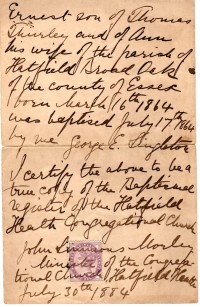 Ernest son of Thomas
and of Ann
his wife of the parish of
Hatfield Broad Oak
of the county of Essex
born March 16th 1864
was baptised July 17th 1864
by me George E. Singleton
I certify the above to be a
true copy of the Baptismal
register of the Hatfield
Heath Congregational Church
John
Minister of the Congrega-
tional Church, Hatfield Heath
July 30th 1884